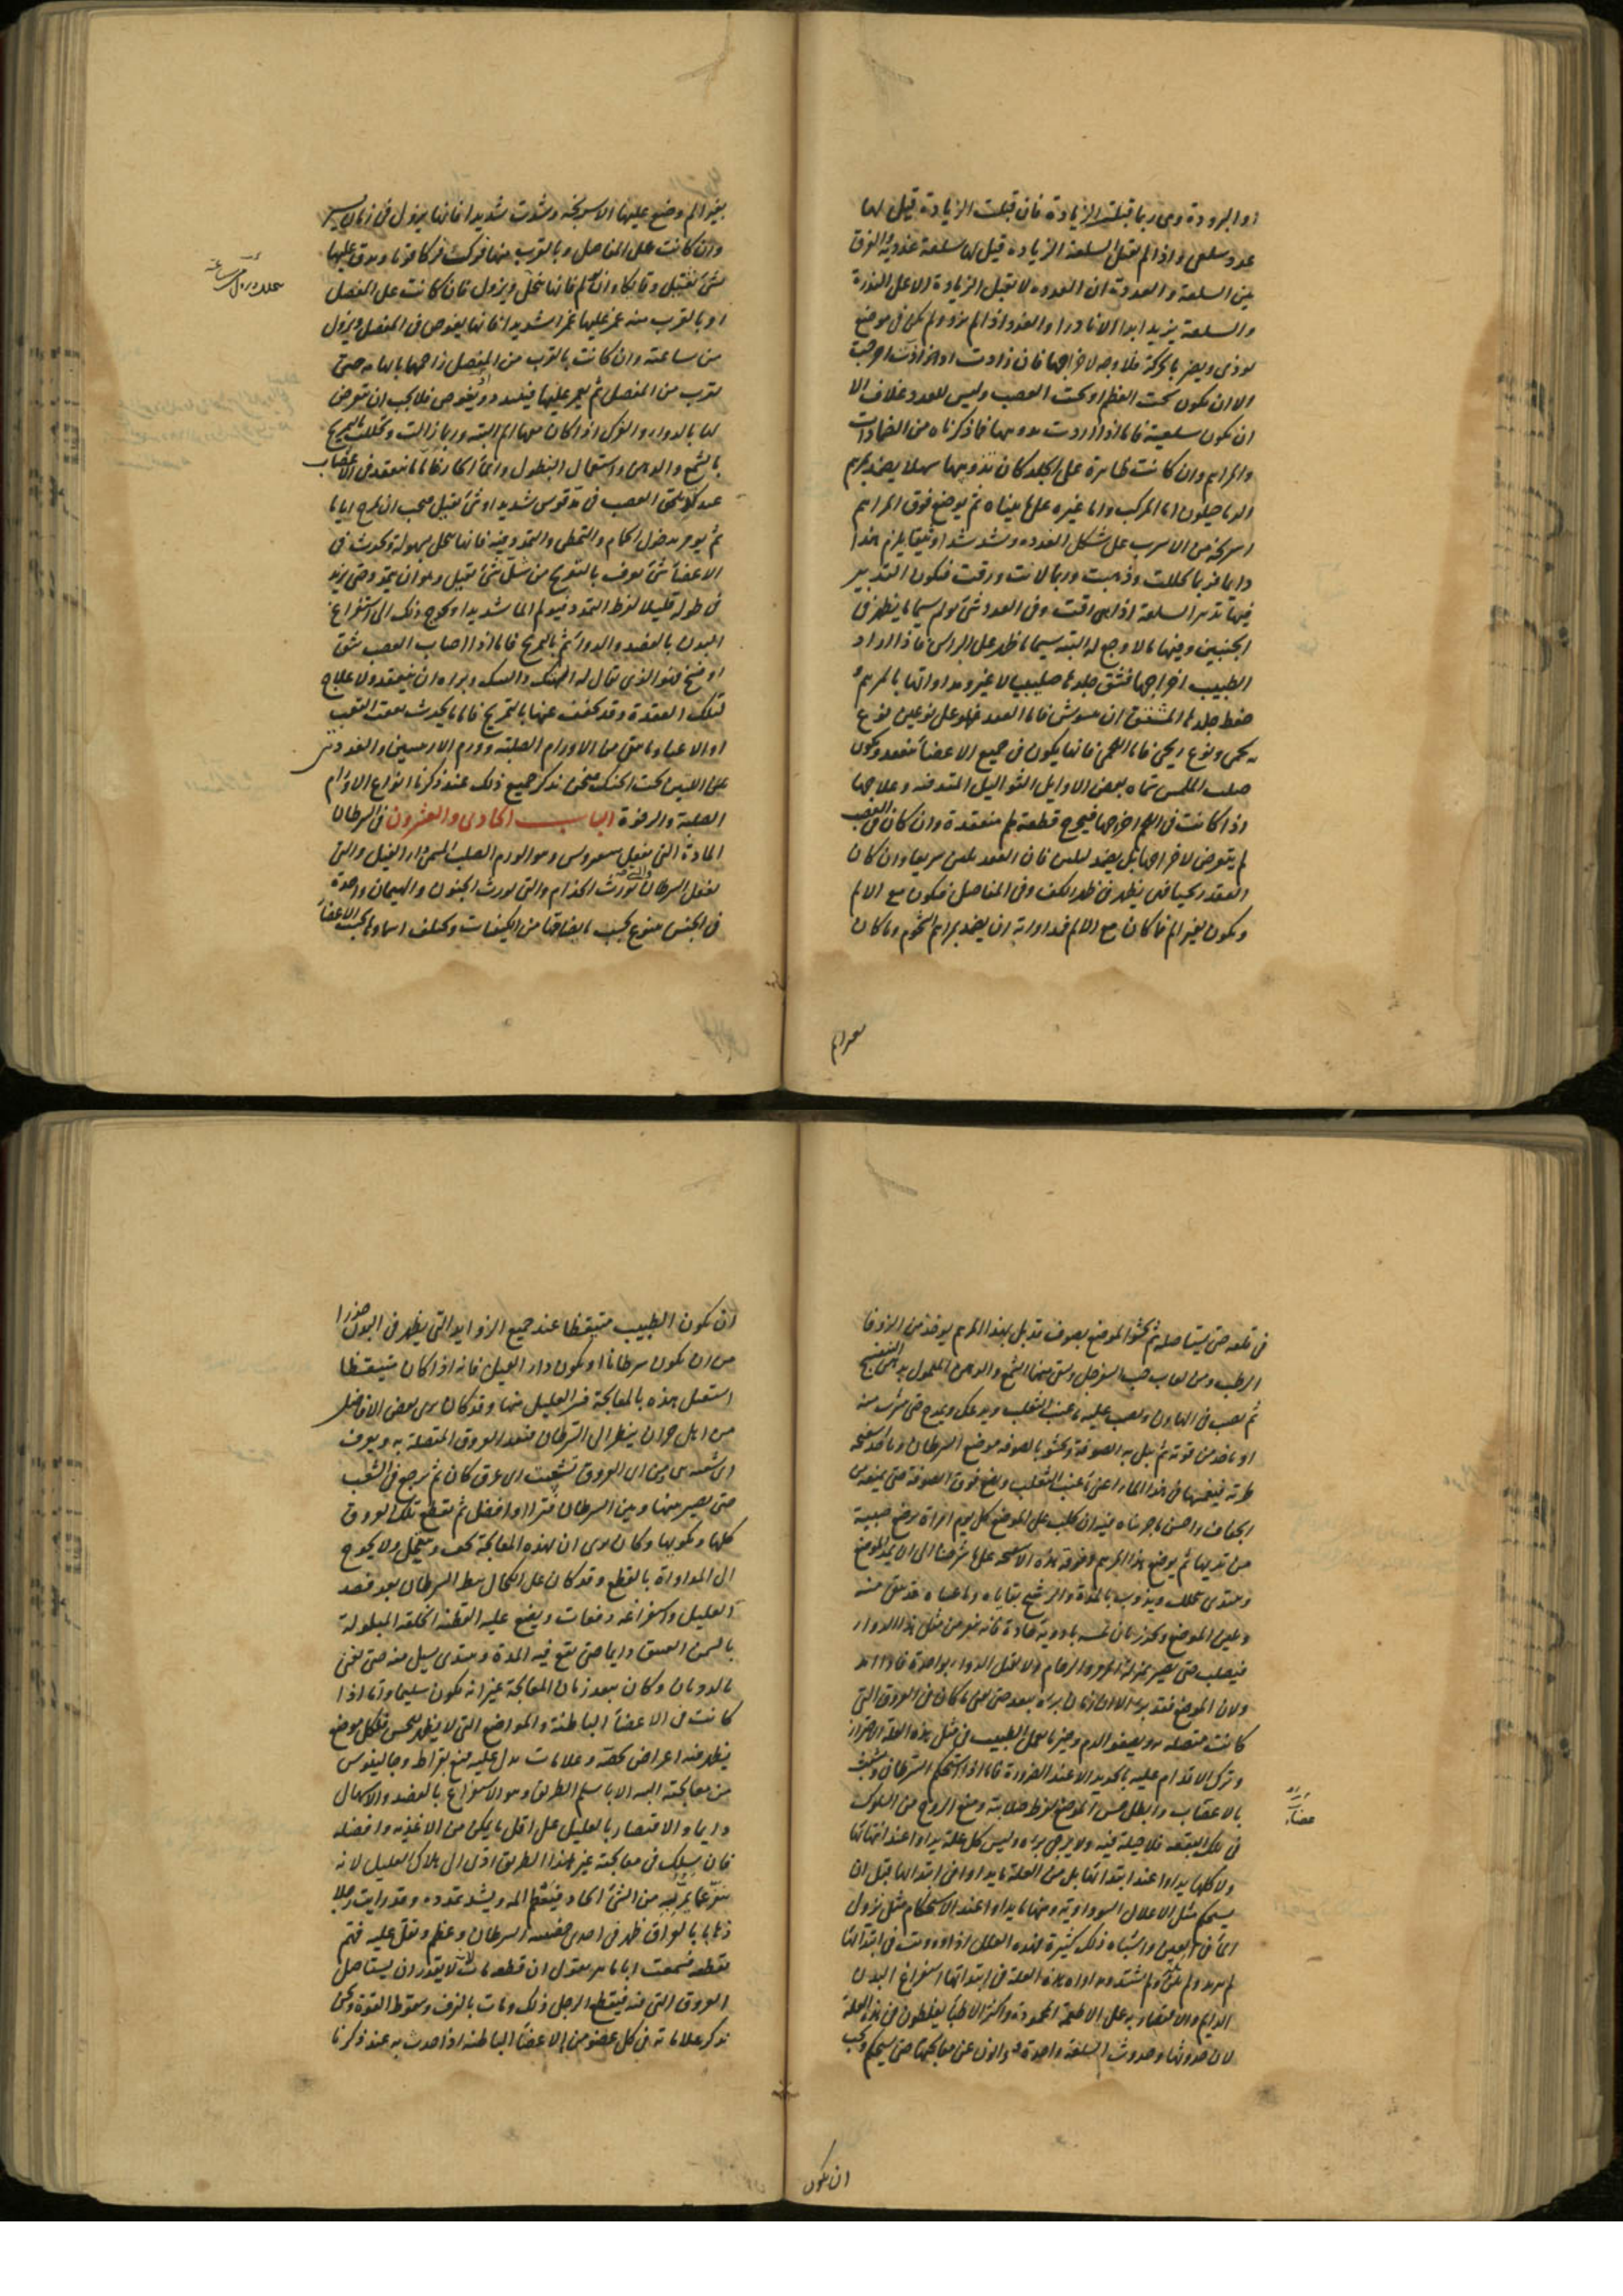 او البرودة وهي ربما قبلت الزيادة فان قبلت الزيادة قيل لها
غدد سلعي واذا لم تقبل السلعة الزيادة قيل لها سلعة غددية والفرق
بين السلعة والغددة ان الغدده لا تقبل الزيادة الا على الندرة
والسلعة يزيد ابدا الا نادرا والغدد اذا لم يؤذ ولم يكن في موضع
يوذي ويضر بالحركة فلا وجه لاخراجها فان زادت او آذت اخرجت
الا ان يكون تحت العظم او تحت العصب وليس للغدد غلاف الا
ان يكون سلعية فاما اذا اردت فما ذكرناه من الضمادات
والمراهم وان كانت ظاهرة على الجلد كان تذويبها سهلا يضمد بمرهم
الدياخيلون اما المركب واما غيره على ما بيناه ثم يوضع فوق المراهم
من الاسرب على شكل الغدده ويشد شدا وثيقا يلزم هذا
دايما فربما تحللت وذهبت وربما لانت ورقت فيكون التدبير
فيها تدبير السلعة اذا وفي الغدد شي يولم سيما ما يظهر في
الجنبين ومنها ما لا وجع له البته سيما ما ظهر على الراس فاذا اراد
الطبيب اخراجها فشق جلدها صليبيا لا غير ومداواتها بالمرهم
جلدها المشقوق ان فاما العقد فهو على نوعين نوع
لحمي ونوع ريحي فاما اللحمي فانما يكون في جميع الاعضا منعقد ويكون
صلب الملمس سماه بعض الاوايل الثواليل وعلاجها
اذا كانت في اللحم اخراجها فيخرج قطعة لحم منعقدة وان كان في العصب
لم يتعرض لاخراجها بل يضمد ليلين فان العقد يلين سريعا وان كان
العقد ريحيا في يظهر في ظهر الكف وفي المفاصل فيكون مع الالم
ويكون بغير الم فما كان مع الالم فمداواته ان يضمد بمراهم الشحوم وما كان
بغير الم وضع عليها وشدت شديدا فانها يزول في زمان يسير
وان كانت على المفاصل وبالقرب منها فركت فركا قويا ودق عليها
شي ثقيل دقا فانها تتحلل ويزول فان كانت على المفصل
او بالقرب منه غمز عليها غمزا شديدا فانها يغوص في المفصل ويزول
من ساعته وان كانت بالقرب من المفصل زاحمها بابهامه حتى
تقرب من المفصل ثم يغمز عليها فيفسد ويغوص فلا يجب ان يتعرض
لها بالدواء والفرك اذا كان معها الم البته وربما زالت وتحللت بالتمريخ
بالشمع والدهن واستعمال النطول والماء الحار فاما ما ينعقد في الاعصاب
عند يلحق العصب في مد قوس شديد او شي ثقيل فيجب ان يمرخ اياما
ثم يومر بدخول الحمام والتمطي والتمدد فيه فانها تنحل بسهولة ويحدث في
الاعضا شي يعرف بالتعوج من شيل شي ثقيل وهو ان يتمدد حتى يزيد
في طوله قليلا لفرط التمدد فيولم الما شديدا ويحوج ذلك الى استفراغ
البدن بالفصد والدوا ثم بالتمريخ فاما اذا اصاب العصب شق
او فسخ فهو الذي يقال له الهتك والسك وبراه ان ينعقد ولا علاج
لتلك العقدة وقد يخفف عنها بالتمريخ فاما ما يحدث بعقب التعب
او الاعيا وما بقي من الاورام الصلبة وورم الاربيتين والغدد
على اللتين تحت الحنك فنحن نذكر جميع ذلك عند ذكرنا انواع الاورام
الصلبة والرخوة الباب الحادي والعشرون في السرطان
المادة التي تفعل وهو الورم الصلب المسمى دار الفيل والتي
تفعل السرطان والتي تورث الجذام والتي تورث الجنون والهيمان واحدة
في الجنس متنوع بحسب ما يضافها من الكيفيات ويختلف اسماوها بحسب الاعضا
بغير الم
في قلعه حتى يستاصله ثم يحشو الموضع بصوف قد بل بهذا المرهم يوخذ من الزوفا
الرطب ومن لعاب حب السفرجل ويسقى منها الشمع والدهن المعمول بدهن البنفسج
ثم يصب في الهاون ويصب عليه ماء عنب الثعلب ويدعك ويمرج حتى يشرب منه
او ياخذ من قوته ثم يبل به الصوفة ويحشو بالصوفة موضع السرطان وياخذ اسفنجة
طرية فيغمسها في هذا الماء اعني ماء عنب الثعلب ويضع فوق الصوفة حتى يمنعه من
الجفاف واحسن ما جربناه فيه ان يحلب على الموضع كل يوم امراة ترضع صبية
من ثديها ثم يوضع هذا المرهم وفوقه هذه الاسفنجة على ما شرحنا الى ان يمد الموضع
ويبتدي يتحلل ويذوب بالمدة والرشح بقاياه وما عساه قد بقي منه
ويلين الموضع ويحذر بان تمسه بادوية حادة فانه ينفر من مثل هذا الدواء
فيصلب حتى يصير بمنزلة الحجر والرخام ولا يقبل الدواء بواحدة فاذا امد
ولان الموضع فقد برى الا ان زمان برئه يبعد حتى يفنى ما كان في العروق التي
كانت متصلة به ويصفو الدم وخير ما يعمل الطبيب في مثل هذه العلة الاحتراز
وترك الاقدام عليه بالحديد الا عند الضرورة فاما اذا استحكم السرطان وتشبث
بالاعقاب وابطل حس الموضع لفرط صلابته ومنع الروح من السلوك
في تلك البقعة فلا حيلة فيه ولا يرجى برءه وليس كل علة يداوا عند انتهائها
ولا كلها يداوا عند ابتدائها بل من العلة ما يداوا في ابتدائها قبل ان
يستحكم مثل الاعلال السوداوية ومنها ما يداوا عند الاستحكام مثل نزول
الماء في العين واشباه ذلك كثيرة لهذه العلل اذا دوويت في ابتدائها
لم يزيد ولم يتمكن ولم يشتد ومداواة هذه العلة في ابتدائها استفراغ البدن
الدايم والاقتصار به على الاطعمة المحمودة واكثر الاطباء يغلطون في هذه العلة
لان حدوثها وحدوث السلعة واحدة عن معالجتها حتى يستحكم ويجب
ان يكون
ان يكون الطبيب متيقظا عند جميع الزوايد التي يظهر في البدن حذرا
من ان يكون سرطانا او يكون دار الفيل فانه اذا كان متيقظا
استعمل هذه بالمعالجة فبرا العليل منها وقد كان يرى بعض الافاضل
من اهل حران ينظر الى السرطان فيتفقد العروق المتصلة به ويعرف
اي شعبة هي ومن اي العروق تشعبت اي عرق كان ثم يرجع في الشعب
حتى يصير بينها وبين السرطان فترا او افضل ثم يقطع تلك العروق
كلها ويكويها وكان يرى ان بهذه المعالجة يخف ويتحلل ولا يحوج
الى المداواة بالقطع وقد كان على الكحال يبط السرطان بعد فصد
العليل واستفراغه دفعات ويضع عليه القطنة الخلقة المبلولة
بالسمن العتيق دايما حتى يقع فيه المدة ويبتدي يسيل منه حتى يفنى
بالذوبان وكان يبعد زمان المعالجة غير انه يكون سليما واما اذا
كانت في الاعضاء الباطنة والمواضع التي لا يظهر للحس فلكل موضع
يظهر فيه اعراض تخصه وعلامات يدل عليه منع بقراط وجالينوس
من معالجته البته الا باسلم الطريق وهو الاستفراغ بالفصد والاسهال
دايما والاقتصار بالعليل على اقل ما يمكن من الاغذيه وافضله
فان سلك في معالجته غير هذا الطريق ادى الى هلاك العليل لانه
من الشي الحاد فيعظم المه ويشتد تمدده وقد رايت رجلا
بالعراق ظهر في احدى السرطان وعظم وثقل عليه فهم
بقطعه فسمعت ابا ماهر يقول ان قطعه مات لانه لا يقدر ان يستاصل
العروق التي فيه فيقطع الرجل ذلك ومات بالنزف وسقوط القوة ونحن
نذكر علاماته في كل عضو من الاعضاء الباطنة اذا حدث به عند ذكرنا